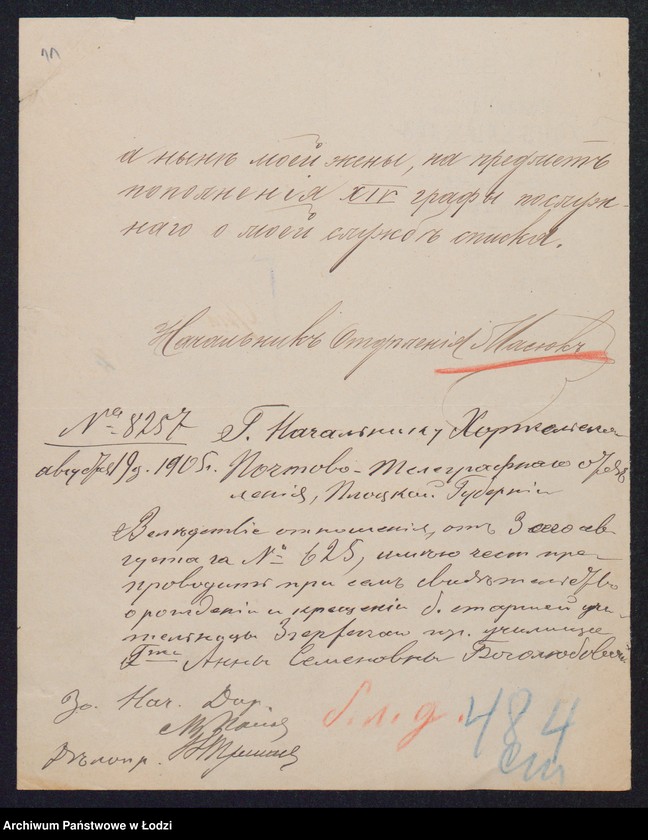 а нынѣ моей жены, на предметъ
пополненія XIV графы послуж-
наго о моей службѣ списка.
Начальникъ Отдѣленія
№ 8257
Г. Начальнику Хоржельска
августа 19 д. 1905 г.
Почтово-Телеграфнаго отдѣ
ленія, Плоцкой Губерніи
Вслѣдствіе отношенія, отъ 3 сего ав-
густа за № 625, имѣю честь пре-
проводить при семъ свидѣтельство
о рожденіи и крещеніи б. старшей учи-
тельницы Згержскаго училища
Анны Семеновны Боголюбовой
За. Нач. Дир.
Дѣлопр.
б. л. д.
484
Archiwum Państwowe w Łodzi